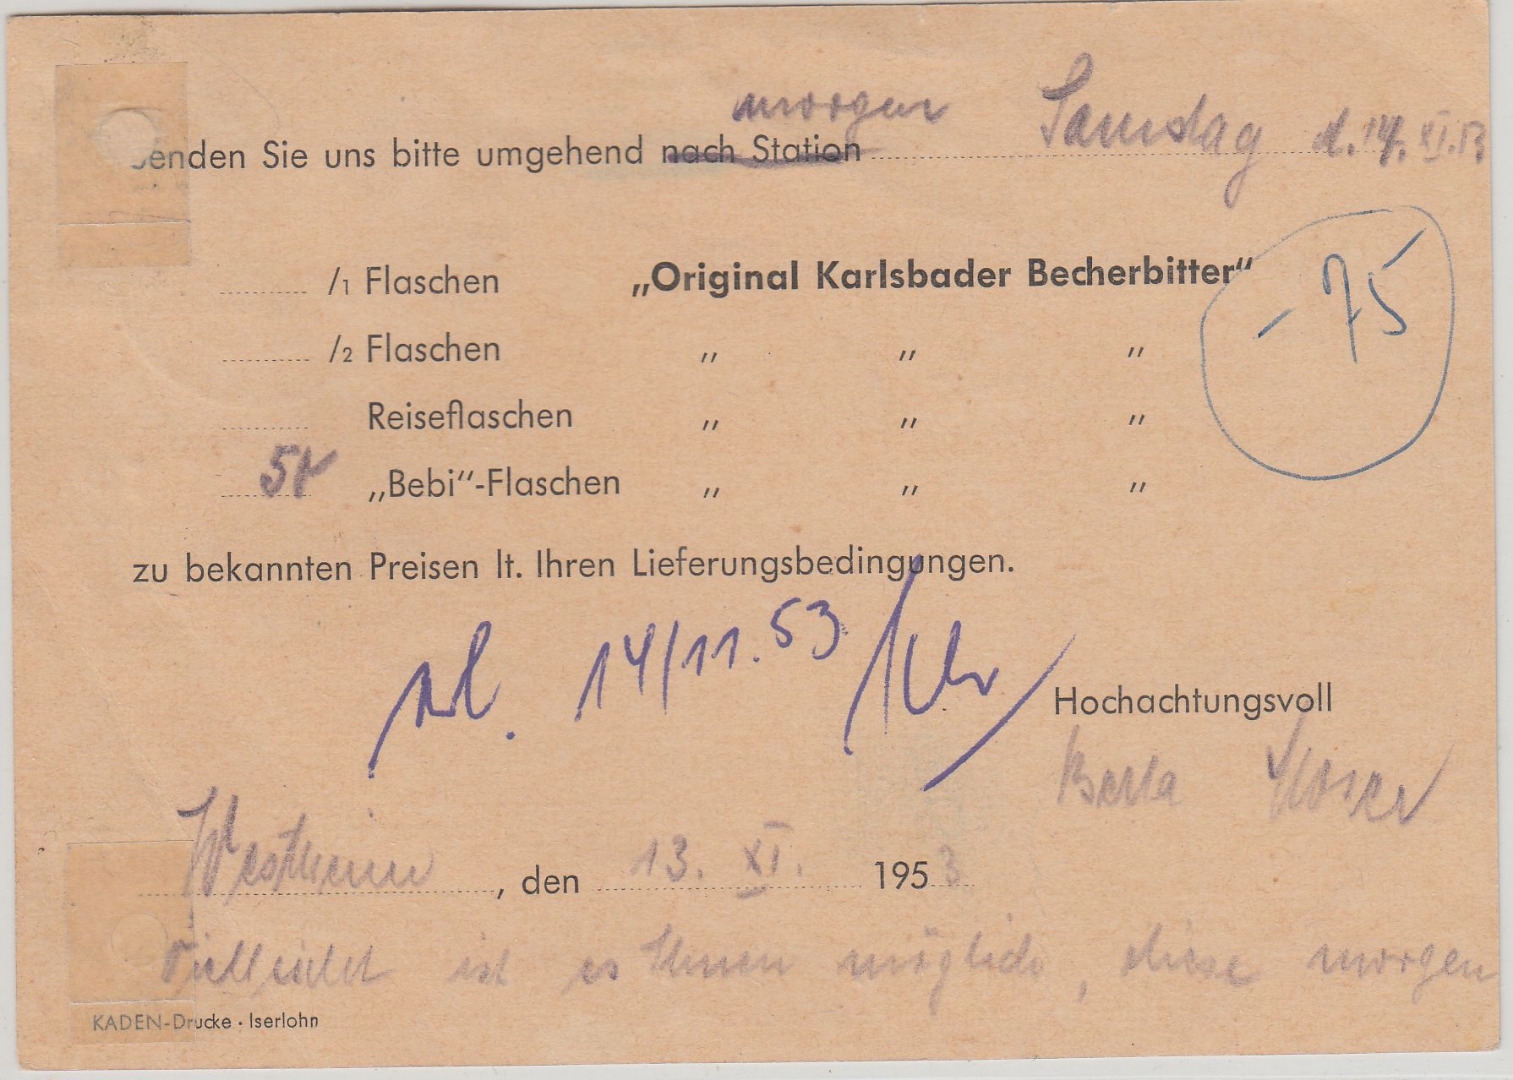 morgen Samstag d. 14. XI. 53
Senden Sie uns bitte umgehend nach Station
/1 Flaschen „Original Karlsbader Becherbitter“
- 75
/2 Flaschen „ „ „
Reiseflaschen „ „ „
„Bebi“-Flaschen „ „ „
zu bekannten Preisen lt. Ihren Lieferungsbedingungen.
14/11.53
Hochachtungsvoll
Berta
Westheim, den 13. XI. 1953
Vielleicht ist es Ihnen möglich, diese morgen
KADEN-Drucke · Iserlohn